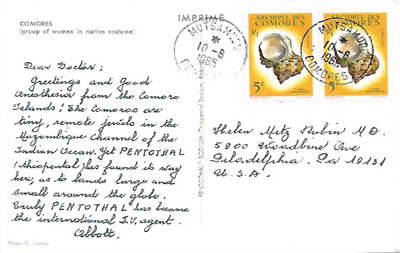 COMORES
(group of women in native costume)
IMPRIMÉ
MUTSAMUDU
*
10-6
1965
COMORES
MUTSAMUDU
*
10-6
1965
COMORES
ARCHIPEL DES
COMORES
5F
ARCHIPEL DES
COMORES
5F
Dear Doctor:
Greetings and Good
Anesthesia from the Comoro
Islands! The Comoros are
tiny, remote jewels in the
Mozambique Channel of the
Indian Ocean. Yet PENTOTHAL
(thiopental) has found its way
here, as to lands large and
small around the globe.
Truly PENTOTHAL has become
the international I.V. agent.
Abbott.
PENTOTHAL® SODIUM (Thiopental Sodium, Abbott)
Helen Metz Rubin M.D.
5900 Woodbine Ave
Philadelphia. Pa 19131
U.S.A.